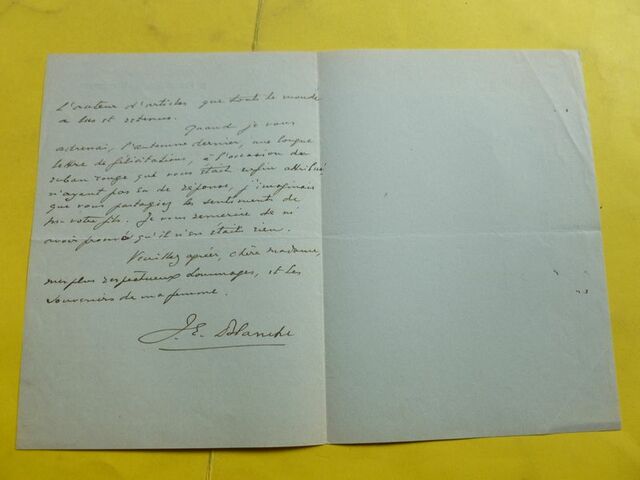 l'auteur d'articles que tout le monde
a lus et retenus.
Quand je vous
adressai, l'automne dernier, une longue
lettre de félicitations, à l'occasion du
ruban rouge qui vous était enfin attribué
n'ayant pas eu de réponse, j'imaginais
que vous partagiez les sentiments de
votre fils. Je vous remercie de m'
avoir prouvé qu'il n'en était rien.
Veuillez agréer, chère madame,
mes plus respectueux hommages, et les
souvenirs de ma femme.
J. E. Blanche